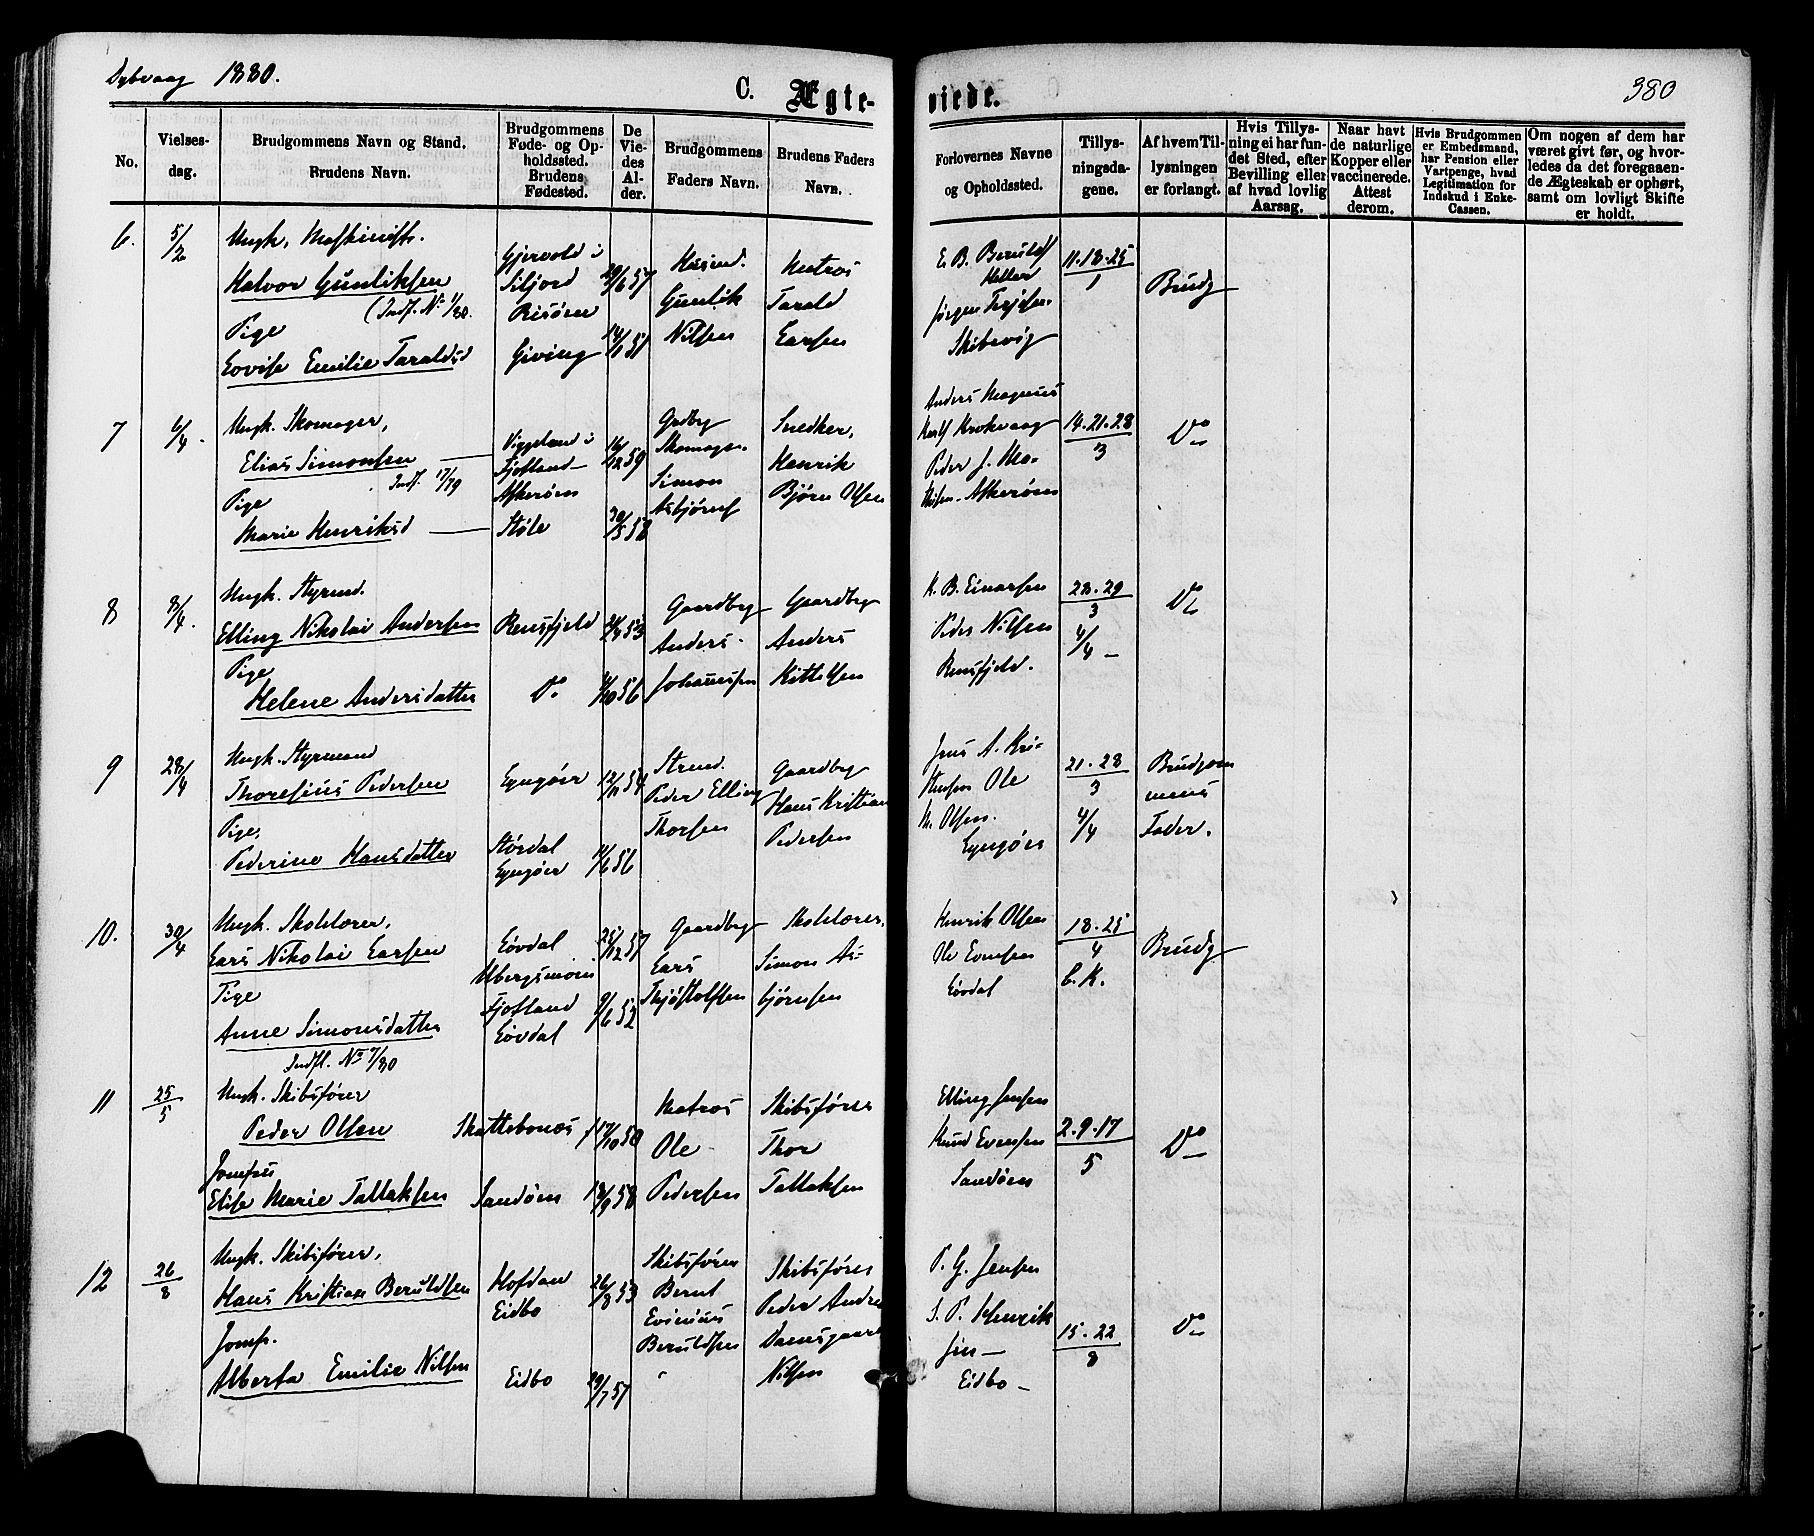 Dybvaag 1880.
C. Ægte-
viede.
380
No.
Vielses-
dag.
Brudgommens Navn og Stand.
Brudens Navn.
Brudgommens
Føde- og Op-
holdssted.
Brudens
Fødested.
De
Vie-
des
Al-
der.
Brudgommens
Faders Navn.
Brudens Faders
Navn.
Forlovernes Navne
og Opholdssted.
Tillys-
ningsda-
gene.
Af hvem Til-
lysningen
er forlangt.
Hvis Tillys-
ning ei har fun-
det Sted, efter
Bevilling eller
af hvad lovlig
Aarsag.
Naar havt
de naturlige
Kopper eller
vaccinerede.
Attest
derom.
Hvis Brudgommen
er Embedsmand,
har Pension eller
Vartpenge, hvad
Legitimation for
Indskud i Enke-
Cassen.
Om nogen af dem har
været givt før, og hvor-
ledes da det foregaaen-
de Ægteskab er ophørt,
samt om lovligt Skifte
er holdt.
6.
5/2
Ungk. Maskinist.
Halvor Gunliksen
(Indf. No 1/80.
Pige
Lovise Emilie Taraldsd
Gjervold i
Siljord
Risöer
Giving
29/6 57
14/1 51
Husmd.
Gunlik
Nilsen
Matros
Tarald
Larsen
E. B. Berulds
Jørgen Terjesen
Skibevig
11.18.25
1
Brudg
7
6/4.
Ungk. Skomager,
Elias Simonsen
Indf. 17/79
Pige
Marie Henriksd
Viggeland i
Fjotland
Askerøen
Støle
16/12 59
30/5 58
Gdbrg
Skomager
Simon
Asbjørns
Snedker,
Henrik
Bjørn Olsen
Anders Magnus
Krokvaag
Peder J. Ma-
thisen. Askerøen
14.21.28
3
Do
8
8/4.
Ungk. Styrmd.
Elling Nikolai Andersen
Pige
Helene Andersdatter
Rensfjeld
Do
53
56
Gaardbrg
Anders
Johannesen
Gaardbrg
Anders
Kittelsen
K. B. Einarsen
Peder Nilsen
Rensfjeld.
28.29
3
4/4
Do
9
28/4
Ungk. Styrmand
Thoresius Pedersen
Pige,
Pederine Hansdatter
Lyngøer
Størdal
Lyngøer
12/11 54
11/6 56
Strmd.
Peder Elling
Thorsen
Gaardbrg
Hans Kristian
Pedersen
Jens A. Kri-
stensen Ole
M. Olsen.
Lyngøer
21.28
3
4/4
Brudgom
mens
Fader.
10.
30/4
Ungk. Skolelærer,
Lars Nikolai Larsen
Pige
Anne Simonsdatter
Indfl. No 7/80
Løvdal
Ubergsmoen
Fjotland
Løvdal
25/12 57
9/6 52
Gaardbrg
Lars
Thjøstolfsen
Skolelærer,
Simon As-
bjørnsen
Henrik Olsen
Ole Evensen
Løvdal
18.25
4
C.K.
Brudg
11
25/5
Ungk. Skibsfører
Peder Olsen
Jomfru
Elise Marie Tallaksen
Skottebonæs
Sandøen
17/10 50
18/9 58
Matros
Ole
Pedersen
Skibsfører
Thor
Tallaksen
Elling Jensen
Knud Evensen
Sandøen
2.9.17
5
Do
12
26/8
Ungk. Skibsfører,
Hans Kristian Beruldsen
Jomfr.
Alberta Emilie Nilsen
Hofdan
Eidbo
Eidbo
26/8 53
29/7 57
Skibsfører
Bernt
Evinius
Beruldsen
Skibsfører
Peder Andre
Damsgaard
Nilsen
P. G. Jensen
S. P. Henrik
sen
Eidbo
15.22
8
Do